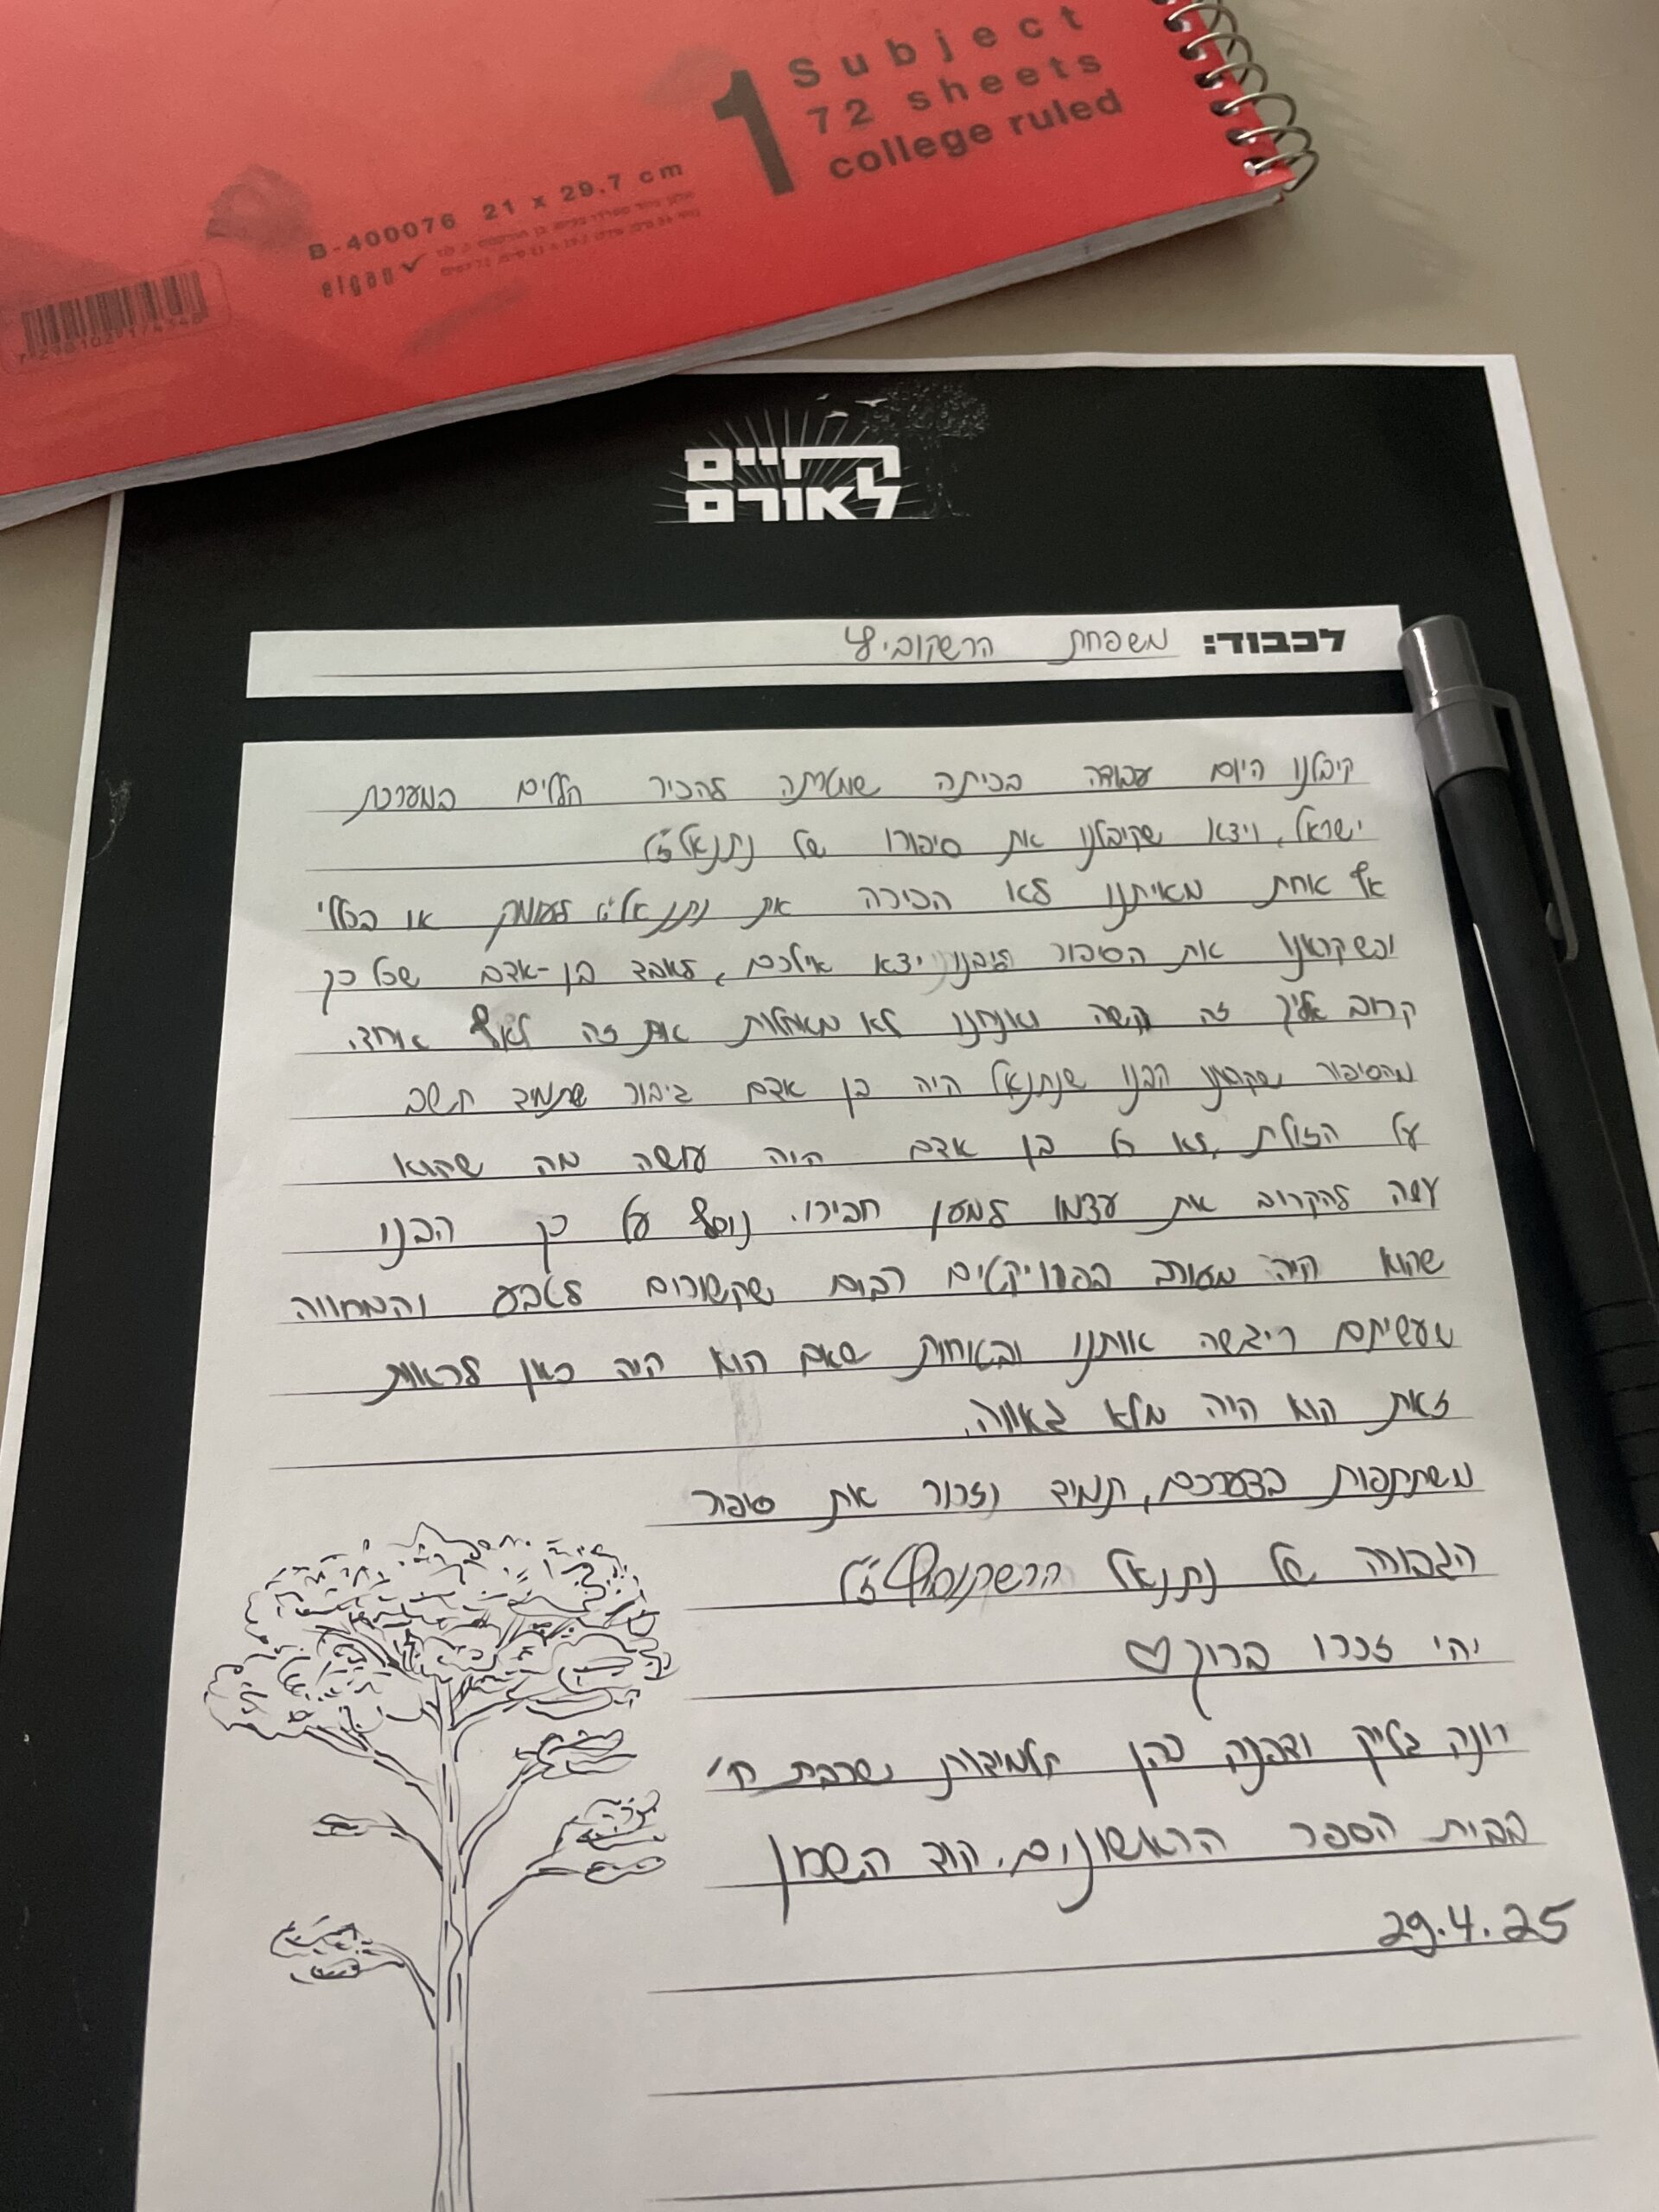 1 Subject
72 sheets
college ruled
B-400076 21 x 29.7 cm
elgad
החיים
לאורם
לכבוד: משפחת הרשקוביץ
קיבלנו היום עבודה בכיתה שמטרתה להכיר חללים במערכת
ישראל, ויצא שקיבלנו את סיפורו של נתנאל ז"ל
אף אחת מאיתנו לא הכירה את נתנאל ז"ל לעומק או בכללי
וכשקראנו את הסיפור ליבנו יצא אילכם, לאבד בן-אדם שכל כך
קרוב אליך זה קשה ואנחנו לא מאחלות את זה לאף אחד.
מהסיפור שקראנו הבנו שנתנאל היה בן אדם גיבור שתמיד חשב
על הזולת, לא כל בן אדם היה עושה מה שהוא
עשה להקריב את עצמו למען חבירו. נוסף על כך הבנו
שהוא היה מעורב בפרוייקטים רבים שקשורים לטבע והמחווה
שעשיתם ריגשה אותנו ובטוחות שאם הוא היה כאן לראות
זאת הוא היה מלא גאווה.
משתתפות בצערכם, תמיד נזכור את סיפור
הגבורה של נתנאל הרשקוביץ ז"ל
יהי זכרו ברוך♡
רונה גליק ודפנה כהן תלמידות שכבת ח'
בבית הספר הראשונים, הוד השרון
29.4.25